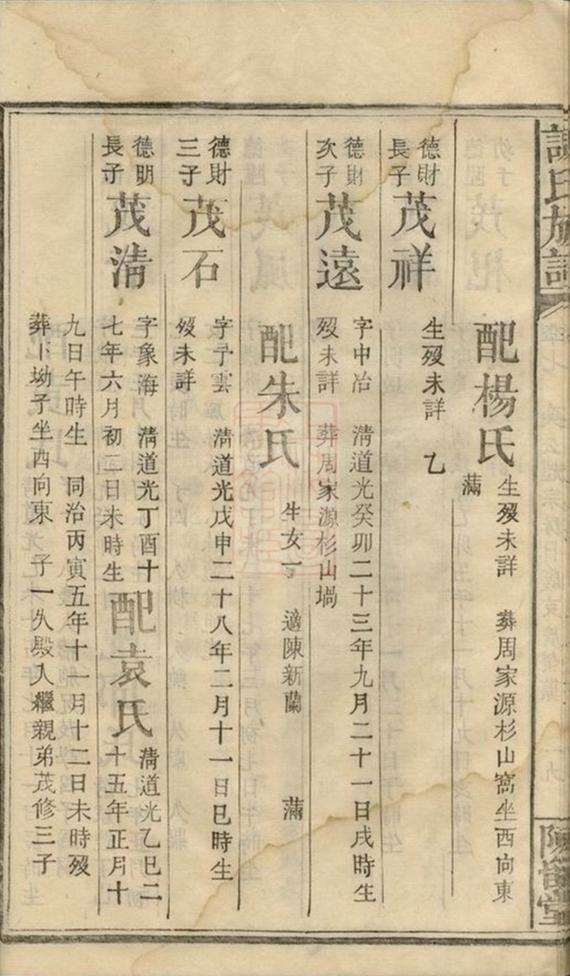 謝氏族譜
陳留堂
配楊氏
生歿未詳 葬周家源杉山窩坐西向東
滿
德財
長子
茂祥
生歿未詳 乙
德財
次子
茂遠
字中冶 清道光癸卯二十三年九月二十一日戌時生
歿未詳 葬周家源杉山塥
配朱氏
生女一 適陳新蘭 滿
德財
三子
茂石
字子雲 清道光戊申二十八年二月十一日巳時生
歿未詳
德明
長子
茂清
字象海 清道光丁酉十
七年六月初二日未時生
配袁氏
清道光乙巳二
十五年正月十
九日午時生 同治丙寅五年十一月十二日未時歿
葬卜坳子坐西向東 子一久殿入繼親弟茂修三子